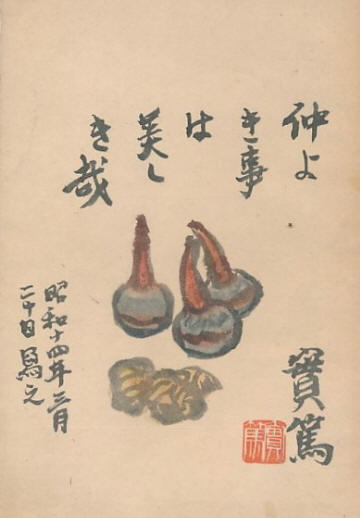 仲よ
き事
は
美し
き哉
實篤
昭和十四年三月
二十日寫之
實篤